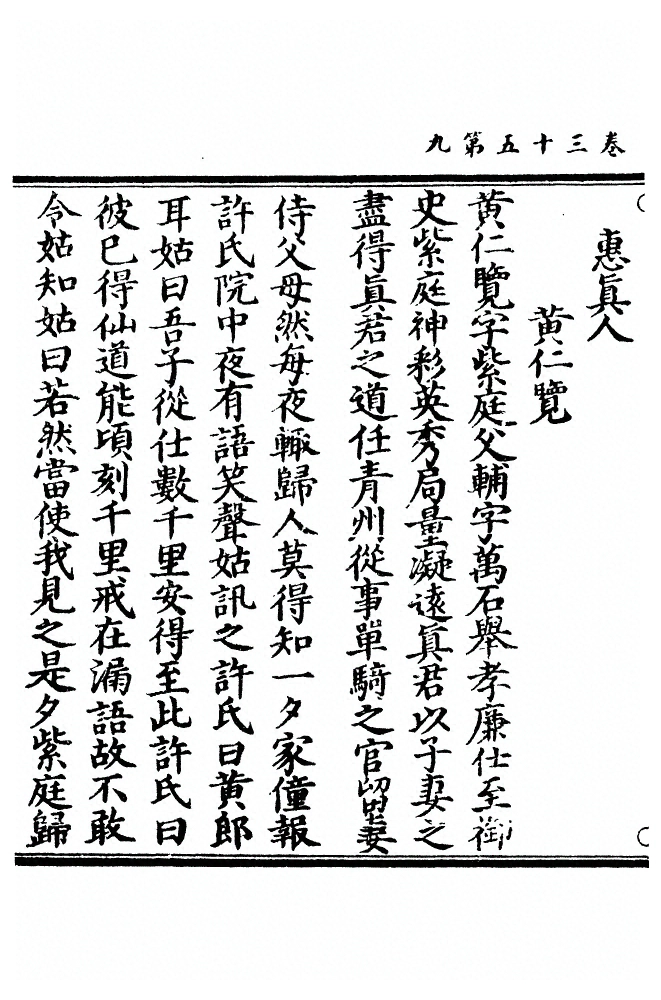 卷三十五第九
惠眞人
黃仁覽
黃仁覽字紫庭父輔字萬石舉孝廉仕至御
史紫庭神彩英秀局量凝遠眞君以子妻之
盡得眞君之道任青州從事單騎之官留妻
侍父母然每夜輙歸人莫得知一夕家僮報
許氏院中夜有語笑聲姑訊之許氏曰黃郎
耳姑曰吾子從仕數千里安得至此許氏曰
彼巳得仙道能頃刻千里戒在漏語故不敢
令姑知姑曰若然當使我見之是夕紫庭歸